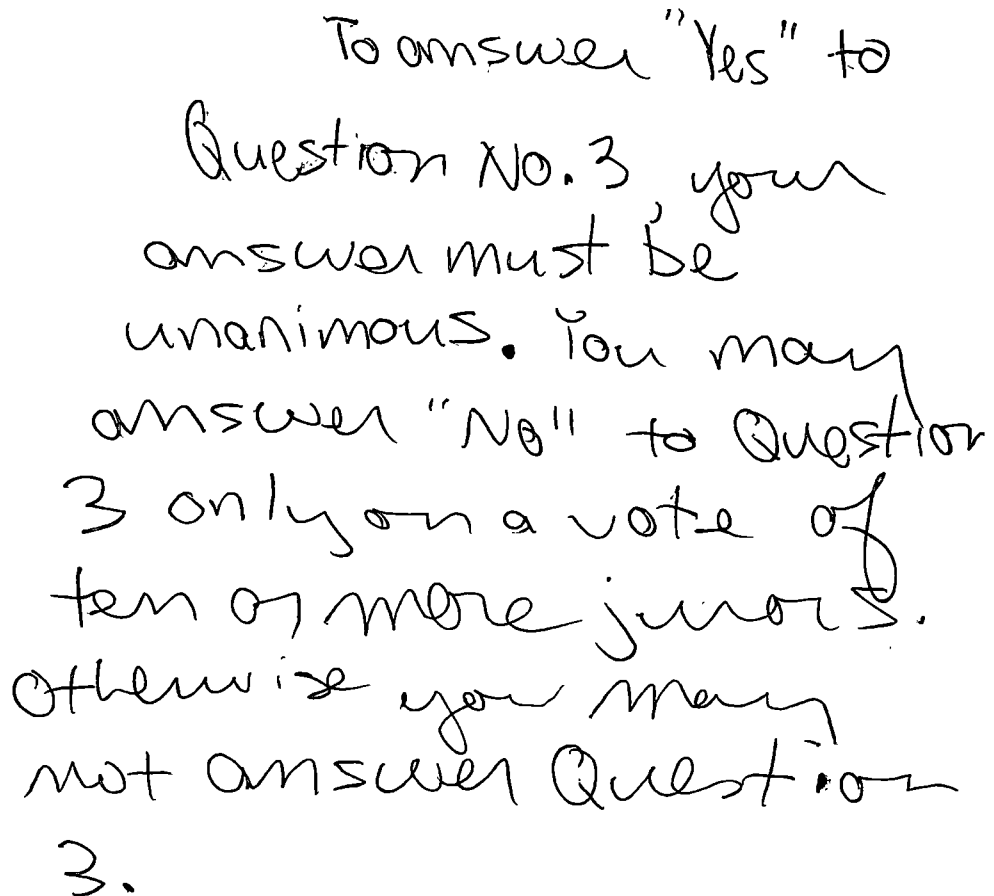 To answer "Yes" to
Question No. 3, your
answer must be
unanimous. You may
answer "No" to Question
3 only on a vote of
ten or more jurors.
Otherwise you may
not answer Question
3.